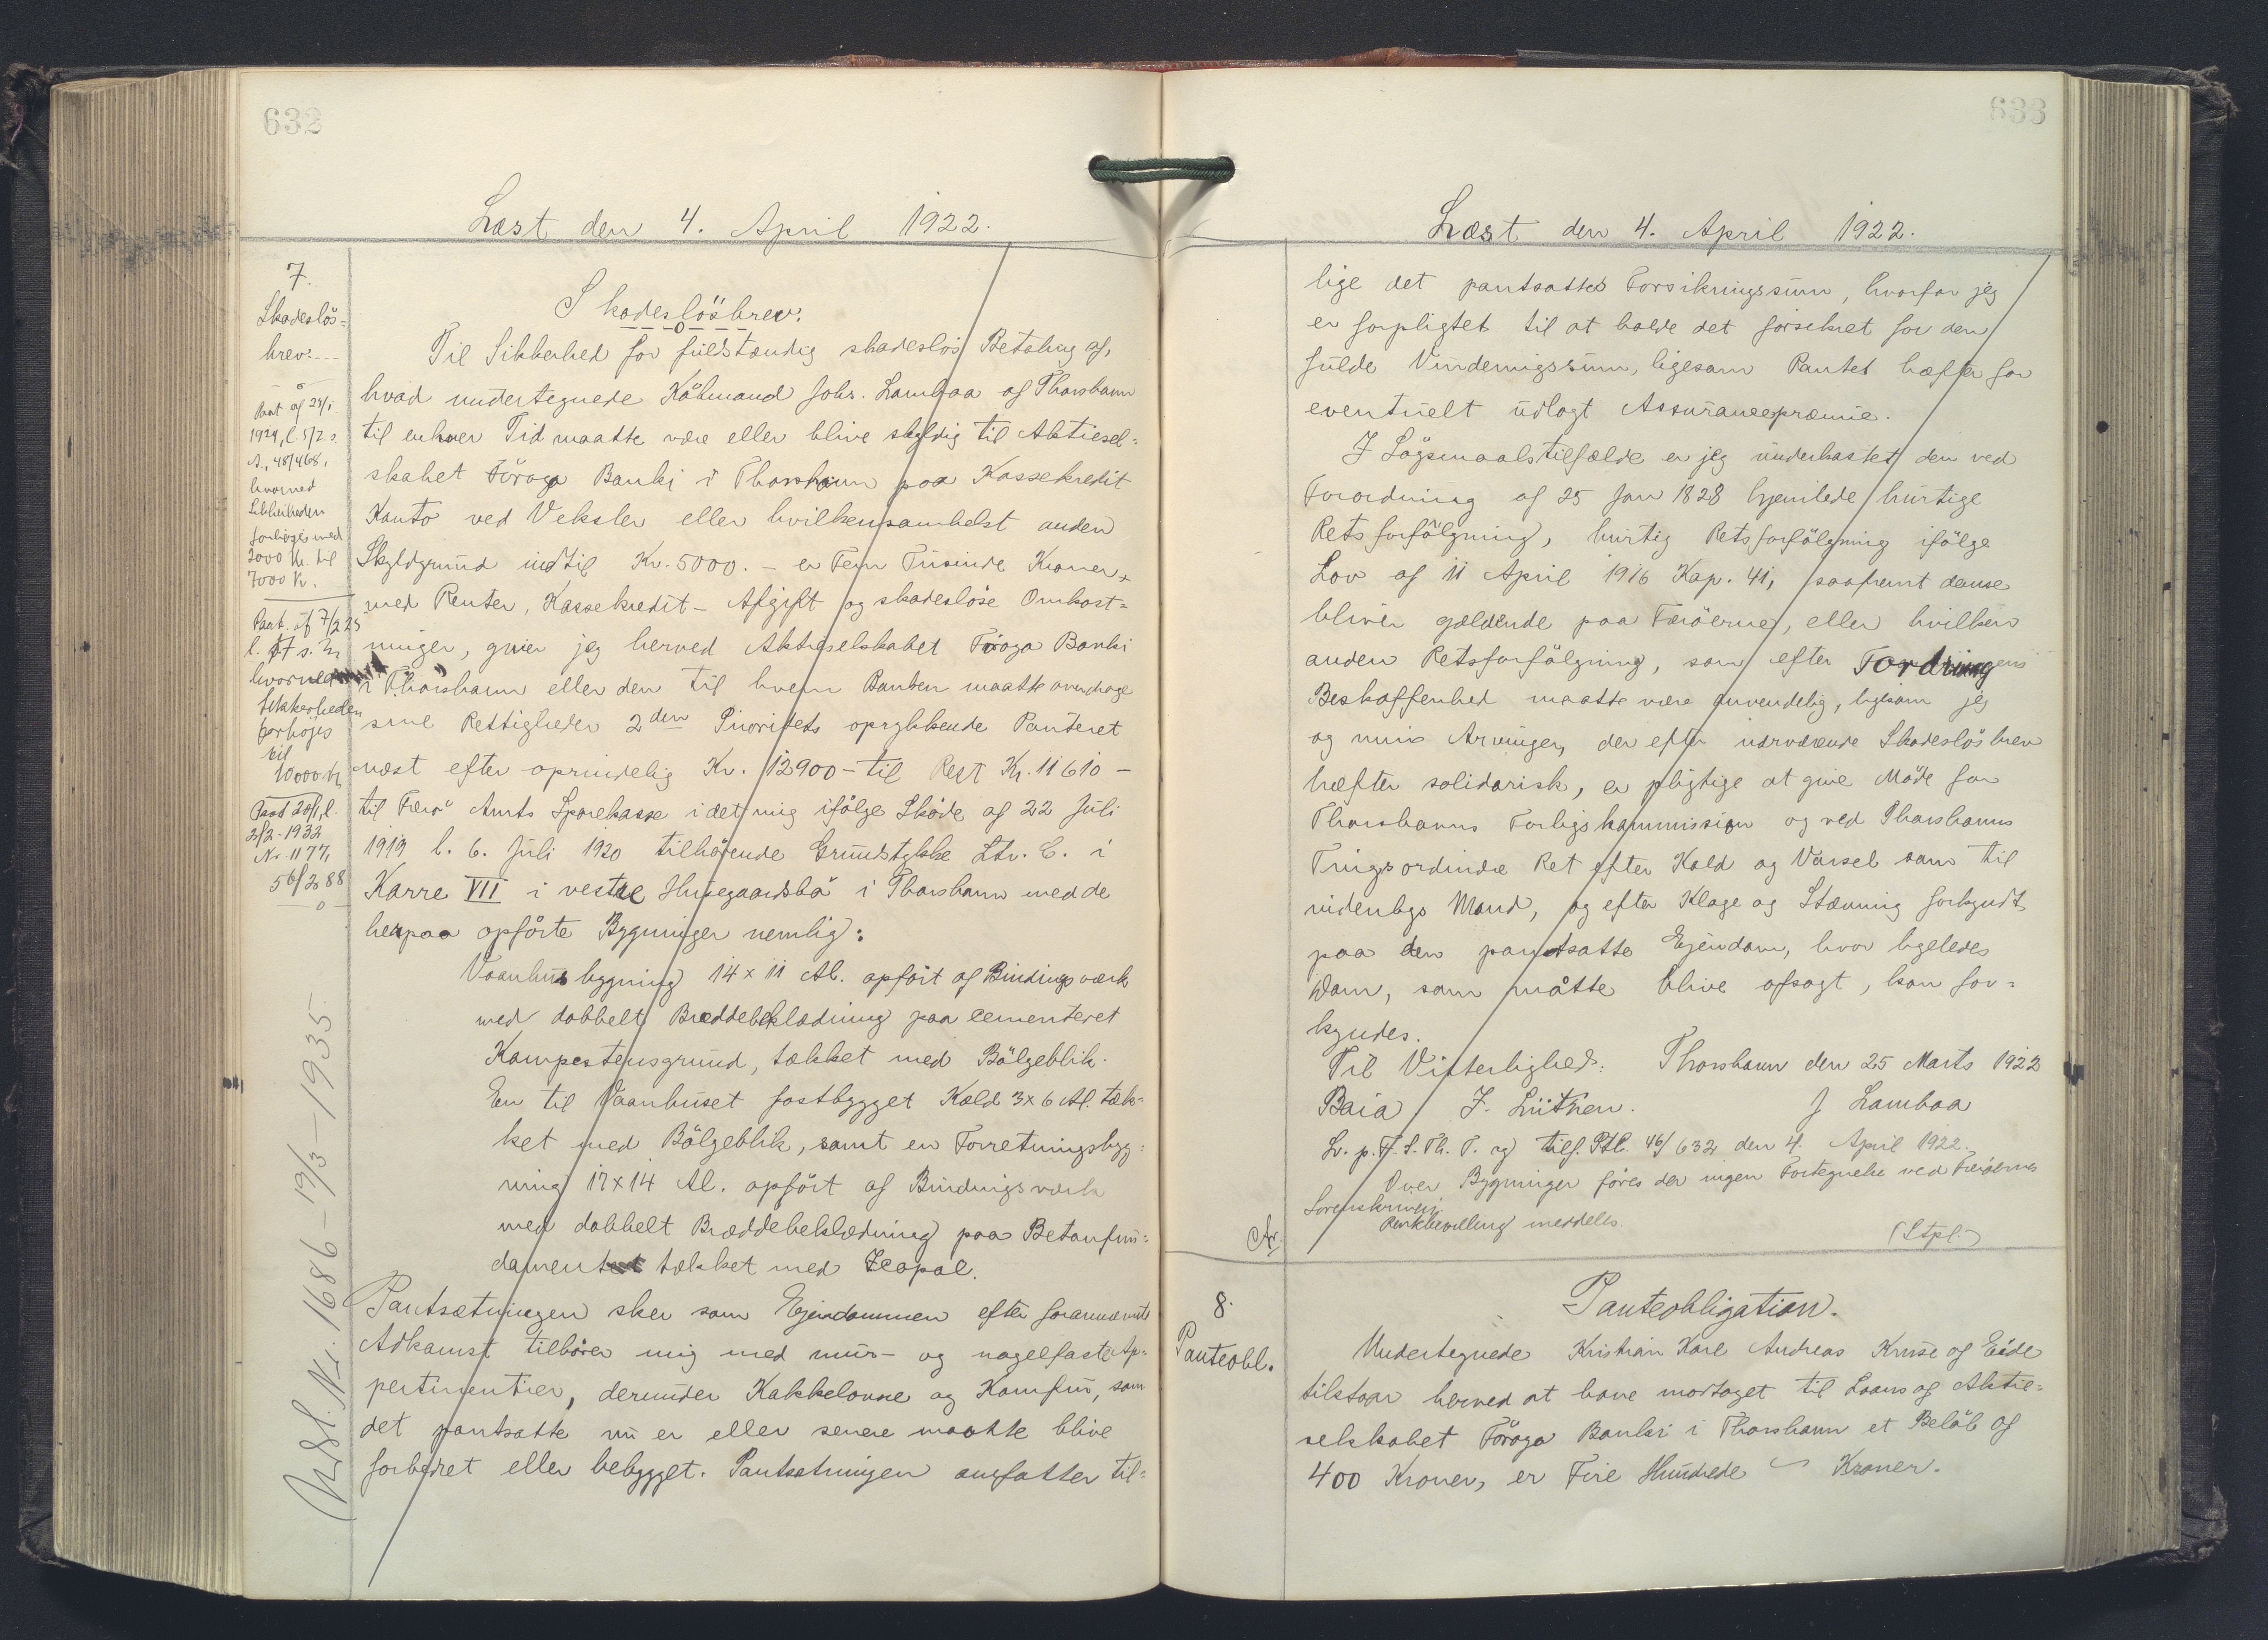 632
Læst den 4. April 1922.
7.
Skadeslös-
brev.
Paat af 24/1
1924, l. 5/2 s.
A., 48/468,
hvorved
Sikkerheden
forhöges med
2000 Kr. til
7000 Kr.
Paat. af 7/2 25
l. 17 s. M
hvorved
Sikkerheden
forhöjes
til
10000 Kr
Paat 20/1, l.
2/2-1932
Nr 1177,
56/288
Udsl. Nr. 1686 - 19/3 - 1935.
Skadeslösbrev.
Til Sikkerhed for fuldstændig skadeslös Betaling af,
hvad undertegnede Köbmand Johs. Lamhaa af Thorshavn
til enhver Tid maatte være eller blive skyldig til Aktiesel=
skabet Föroya Banki i Thorshavn paa Kassekredit
Konto ved Veksler eller hvilkensomhelst anden
Skyldgrund indtil Kr. 5000. - er Fem Tusinde Kroner,
med Renter, Kassekredit - Afgift og skadeslöse Omkost=
ninger, giver jeg herved Aktieselskabet Föroya Banki
i Thorshavn eller den til hvem Banken maatte overdrage
sine Rettigheder 2den Prioritets oprykkende Panteret
næst efter oprindelig Kr. 12900 - til Rest Kr. 11610 -
til Færö Amts Sparekasse i det mig ifölge Sköde af 22 Juli
1919 l. 6. Juli 1920 tilhörende Grundstykke Ltr. C. i
Karre VII i vestre Husegaardsbö i Thorshavn med de
herpaa opförte Bygninger nemlig:
Vaanhusbygning 14 x 11 Al. opfört af Bindingsværk
med dobbelt Bræddebeklædning paa cementeret
Kampestensgrund, tækket med Bölgeblik.
En til Vaanhuset fastbygget Kæld 3 x 6 Al. tæk=
ket med Bölgeblik, samt en Forretningsbyg=
ning 17 x 14 Al. opfört af Bindingsværk
med dobbelt Bræddebeklædning paa Betonfun=
dament tækket med Icopal.
Pantsætningen sker som Ejendommen efter forannævnte
Adkomst tilhörer mig med mur- og nagelfaste Ap=
pertinentier, derunder Kakkelovne og Komfur, som
det pantsatte nu er eller senere maatte blive
forbedret eller bebygget. Pantsætningen omfatter til=
633
Læst den 4. April 1922.
lige det pantsattes Forsikringssum, hvorfor jeg
er forpligtet til at holde det forsikret for den
fulde Vurderingssum, ligesom Pantet hæfter for
eventuelt udlagt Assurancepræmie.
I Lögsmaalstilfælde er jeg underkastet den ved
Forordning af 25 Jan 1828 hjemlede hurtige
Retsforfölgning, hurtig Retsforfölgning ifölge
Lov af 11 April 1916 Kap. 41, saafremt denne
bliver gældende paa Færöerne, eller hvilken
anden Retsforfölgning, som efter Fordringens
Beskaffenhed maatte være anvendelig, ligesom jeg
og mine Arvinger, der efter nærværende Skadeslösbrev
hæfter solidarisk, er pligtige at give Möde for
Thorshavns Forligskommission og ved Thorshavns
Tings ordinære Ret efter Kald og Varsel som til
nidenbys Mand, og efter Klage og Stævning forkyndt
paa den pantsatte Ejendom, hvor ligeledes
Dom, som måtte blive afsagt, kan for=
kyndes.
Til Vitterlighed: Thorshavn den 25 Marts 1922
Baia J. Lützen. J Lamhaa
Lr. p. F. S. Th. T. og tilf. Ptb. 46/632 den 4. April 1922.
Over Bygninger föres der ingen Fortegnelse ved Færöernes
Sorenskriveri.
meddeles.
(Stpl.)
Ar.
8.
Panteobl.
Panteobligation.
Undertegnede Kristian Karl Andreas Kruse af Eide
tilstaar herved at have modtaget til Laans af Aktie=
selskabet Föroya Banki i Thorshavn et Belöb af
400 Kroner, er Fire Hundrede ~ Kroner.